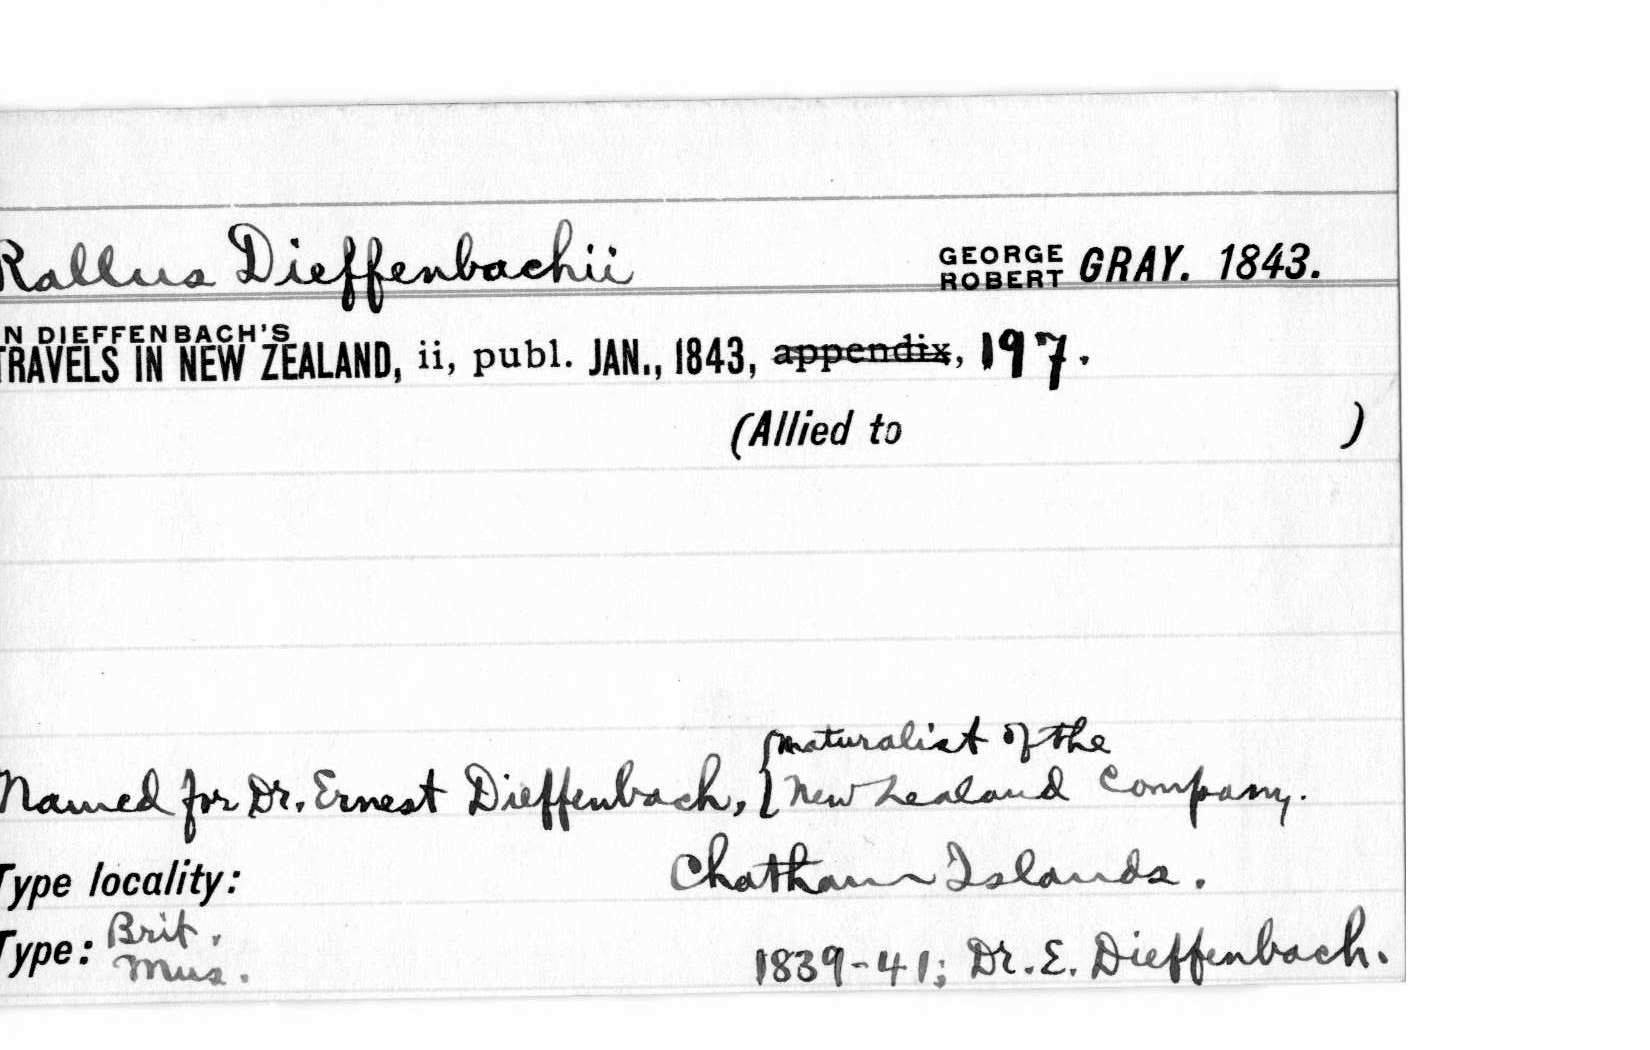 Rallus Dieffenbachii GEORGE ROBERT GRAY. 1843.
IN DIEFFENBACH'S
TRAVELS IN NEW ZEALAND, ii, publ. JAN., 1843, appendix, 197.
(Allied to )
naturalist of the
Named for Dr. Ernest Dieffenbach, New Zealand Company.
Type locality: Chatham Islands.
Type: Brit. Mus. 1839-41; Dr. E. Dieffenbach.